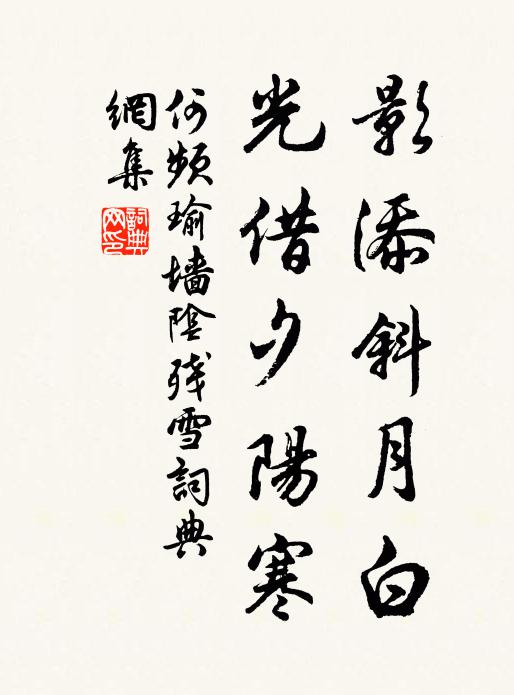 影添斜月白
光借夕陽寒
何頻瑜墻陰殘雪詞典
網集
詞典
网印